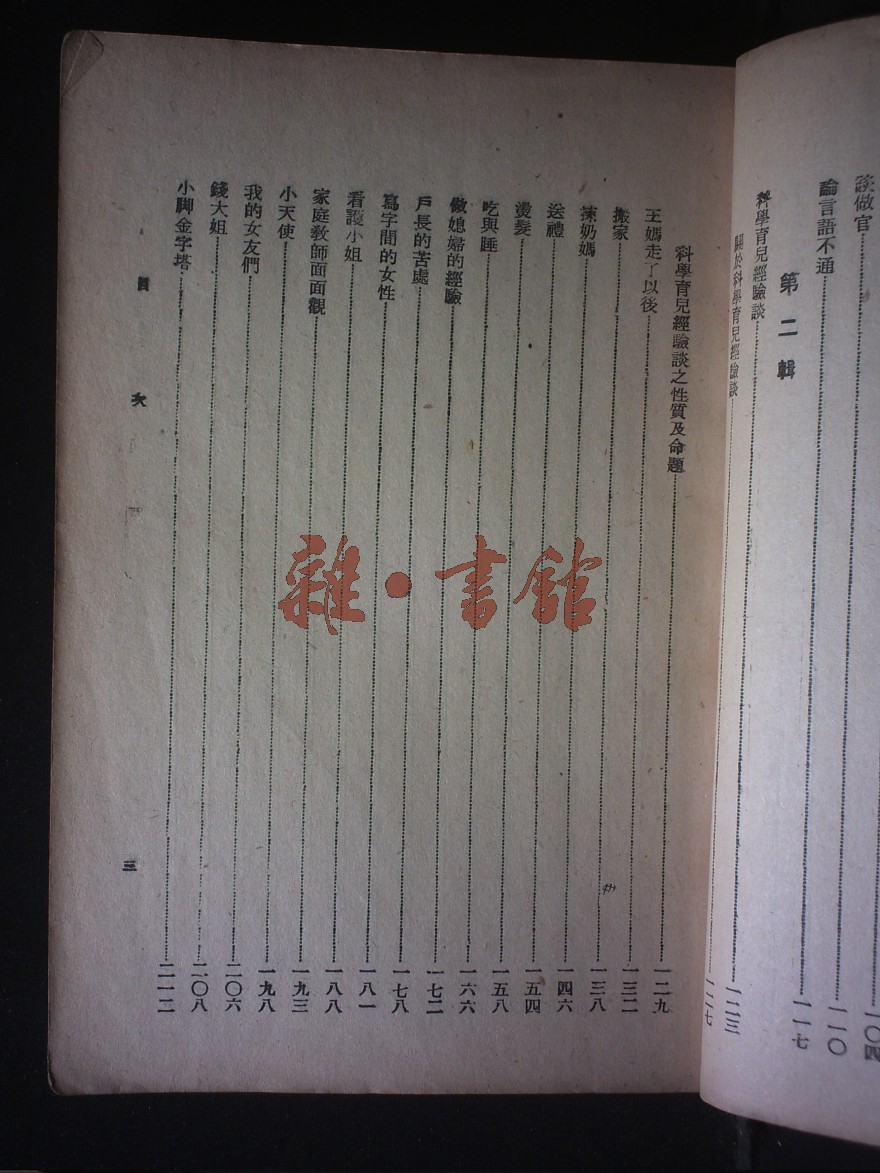 一〇四
談做官……一一〇
論言語不通……一一七
第二輯
科學育兒經驗談……一二三
關於科學育兒經驗談……一二七
科學育兒經驗談之性質及命題……一二九
王媽走了以後……一三二
搬家……一三八
揀奶媽……一四六
送禮……一五四
燙髮……一五八
吃與睡……一六六
做媳婦的經驗……一七二
戶長的苦處……一七八
寫字間的女性……一八一
看護小姐……一八八
家庭敎師面面觀……一九三
小天使……一九八
我的女友們……二〇六
錢大姐……二〇八
小脚金字塔……二一二
目次
三
雜·書館